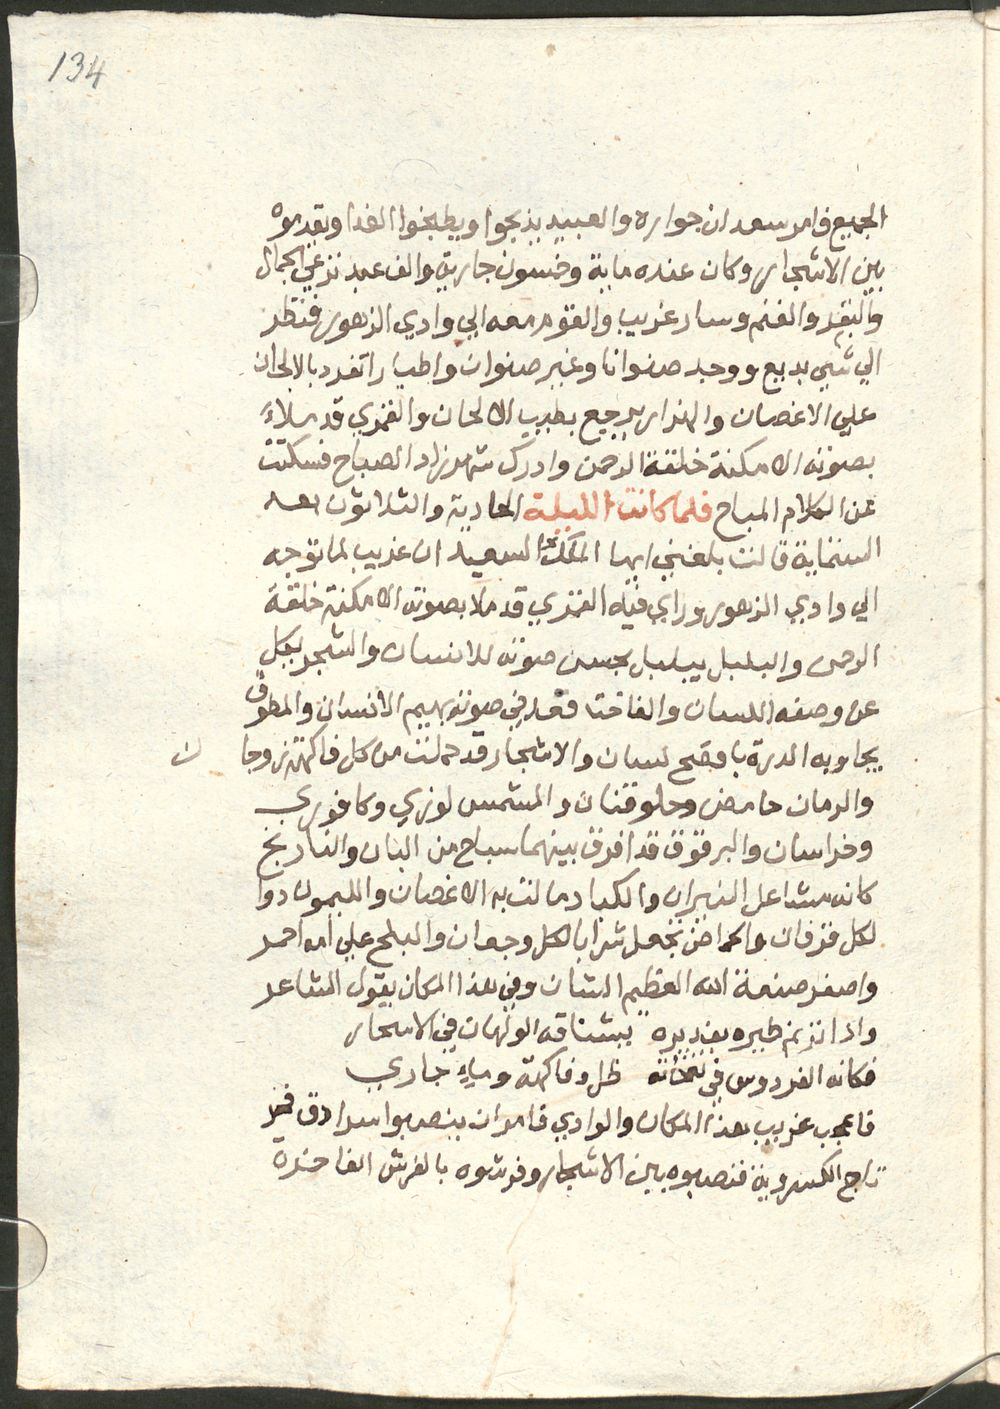 134
الجميع فامر سعدان جواره والعبيد يذبحوا ويطبخوا الغدا ويقدموه
بين الاشجار وكان عنده ماية وخمسون جارية والف عبد ترعي الجمال
والبقر والغنم وسار غريب والقوم معه الي وادي الزهور فنظر
الي شي بديع ووجد صنوانا وغير صنوان واطيارا تغرد بالالحان
علي الاغصان والهزار يرجع بطيب الالحان والقمري قد ملاء
بصوته الامكنة خلقة الرحمن وادرك شهرزاد الصباح فسكتت
عن الكلام المباح فلما كانت الليلة الحادية والثلاثون بعد
الستماية قالت بلغني ايها الملك السعيد ان غريب لما توجه
الي وادي الزهور وراي فيه القمري قد ملا بصوته الامكنة خلقة
الرحمن والبلبل يبلبل بحسن صوته للانسان والشجر يكل
عن وصفه اللسان والفاخت فعد في صوته يهيم الانسان والمطوق
يجاوبه الدرة بافصح لسان والاشجار قد حملت من كل فاكهة زوجا
ن
والرمان حامض وحلو قتان والمشمس لوزي وكافوري
وخراسان والبرقوق قد افرق بينهما سباح من البان والنارنج
كانه مشاعل النيران والكباد مالت به الاغصان والليمون دوا
لكل قرفان والحماض تجعل شرابا لكل وجعان والبلح علي امه احمر
واصفر صنعة الله العظيم الشان وفي هذا المكان يقول الشاعر
واذا ترنم طيره بغديره يشتاقه الولهان في الاسحار
فكانه الفردوس في نفحاته ظل وفاكهة وماء جاري
فاعجب غريب هذا المكان والوادي فامر ان ينصبوا سرادق فخر
تاج الكسروية فنصبوه بين الاشجار وفرشوه بالفرش الفاخرة